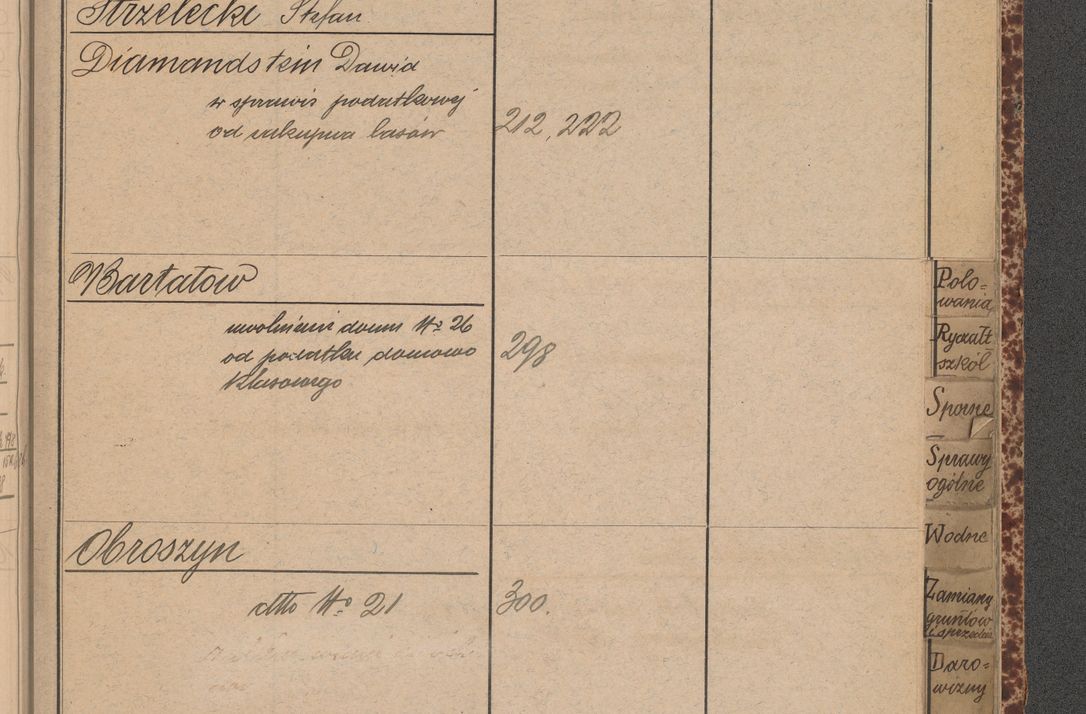 Strzelecki Stefan
Diamandstein Dawid
w sprawie podatkowej
od zakupna lasów
212, 222
Bartatów
uwolnienie domu No 26
od podatku domowo
klasowego
298
Obroszyn
dtto No 21
300.
Polo=
wania
Ryczałt
szkół
Sporne
Sprawy
ogólne
Wodne
Zamiany
gruntów
i sprzedaż
Daro=
wizny